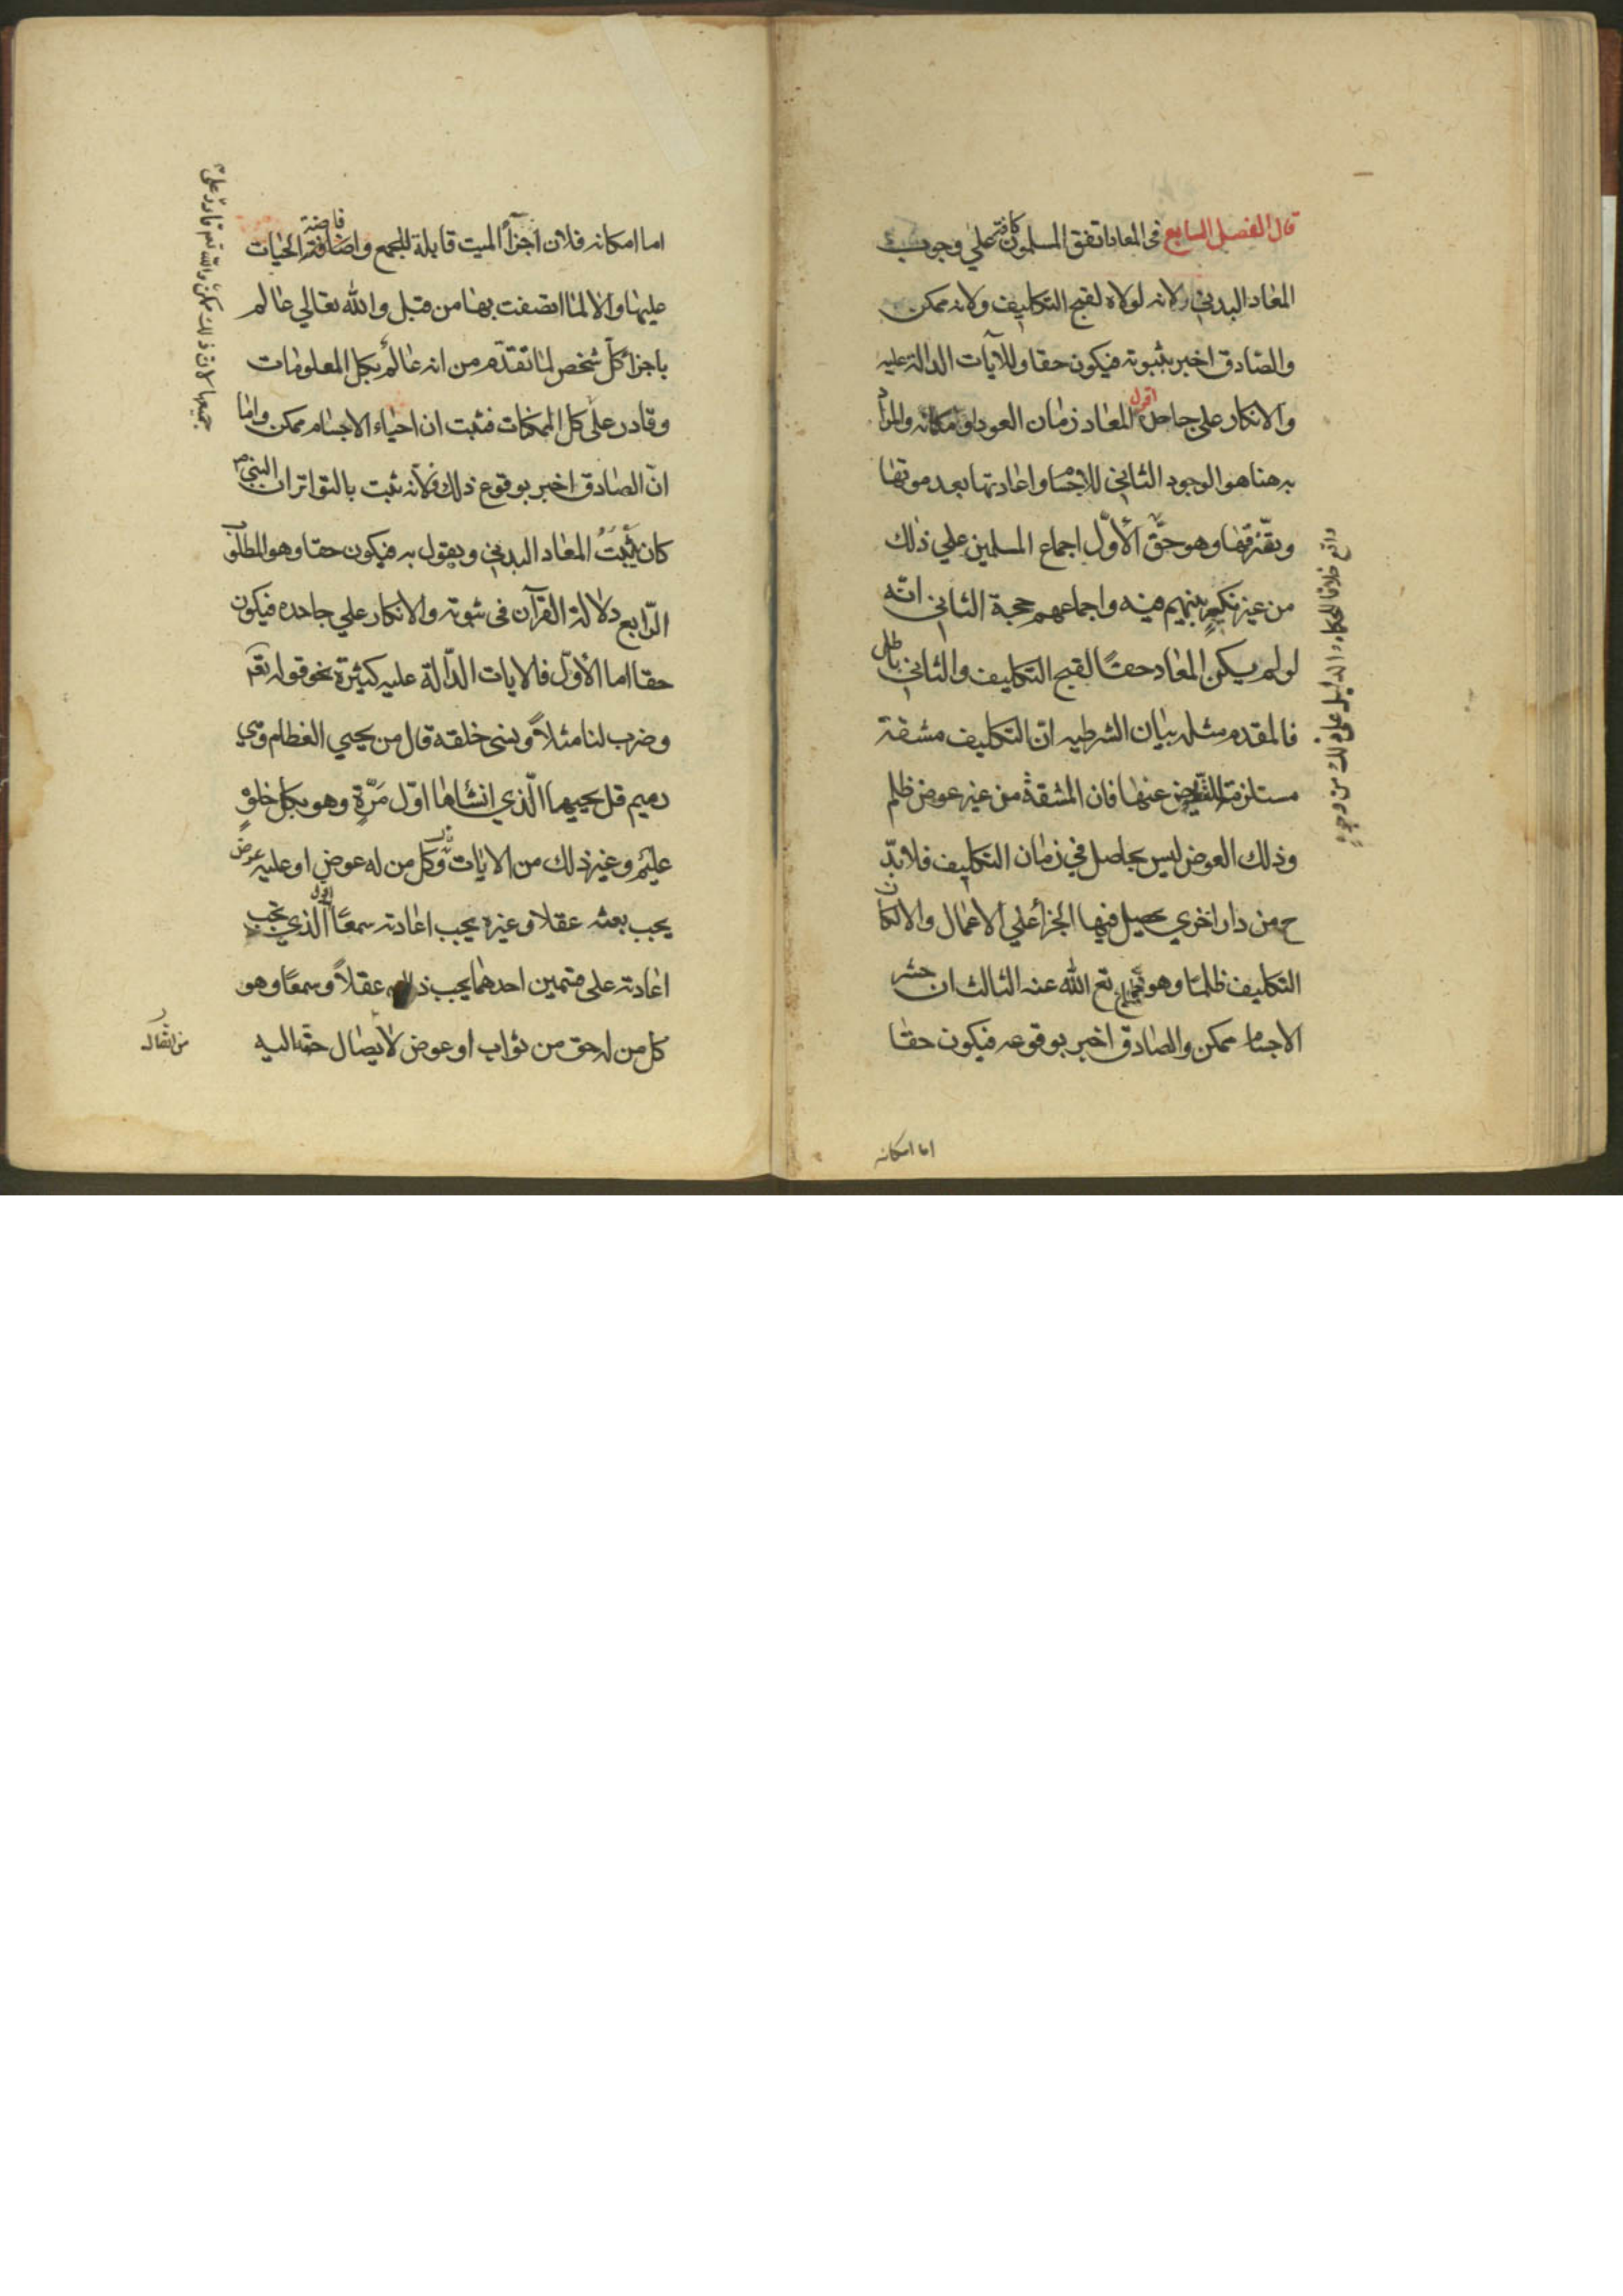 قال الفصل السابع فى المعاد اتفق المسلمون كافة على وجوب
المعاد البدني ولانه لولاه لقبح التكليف ولانه ممكن
والصادق اخبر بثبوته فيكون حقا وللآيات الدالة عليه
والانكار على جاحده اقول المعاد زمان العود او مكانه والمراد
به هنا هو الوجود الثاني للاجسام واعادتها بعد موتها
وتفرقها وهو حق الأوّل اجماع المسلمين علي ذلك
من غير نكير بينهم فيه واجماعهم حجة الثاني انّه
لو لم يكن المعاد حقاً لقبح التكليف والثاني باطل
فالمقدم مثله بيان الشرطيه انّ التكليف مشقة
مستلزمة للتعويض عنها فان المشقة من غير عوض ظلم
وذلك العوض ليس بحاصل في زمان التكليف فلا بدّ
ح من دار اخري يحصل فيها الجزأ علي الاعمال والا لكان
التكليف ظلما وهو قبيح تع الله عنه الثالث ان حشر
الاجسام ممكن والصادق اخبر بوقوعه فيكون حقا
واقع خلافا للحكماء والدليل على ذلك من وجوه
اما امكانه
اما امكانه فلان اجزآء الميت قابلة للجمع وافاضة الحيات
عليها والا لما اتصفت بها من قبل والله تعالي عالم
باجزأ كلّ شخص لما تقدّم من انه عالم بكل المعلومات
وقادر على كل الممكنات فثبت ان احياء الاجسام ممكن واما
انّ الصادق اخبر بوقوع ذلك فلأنه ثبت بالتواتر ان النبي ص
كان يُثبتُ المعاد البدني ويقول به فيكون حقا وهو المطلوب
الرّابع دلالة القرآن فى ثبوته والانكار علي جاحده فيكون
حقا اما الأوّل فالايات الدّالة عليه كثيرة نحو قوله تعم
وضرب لنا مثلاً ونسى خلقه قال من يحيي العظام وهي
رميم قل يحييها الّذي انشاها اوّل مَرّةٍ وهو بكل خلقٍ
عليم وغير ذلك من الايات قال وكل من له عوض او عليه عوض
يجب بعثه عقلا وغيره يجب اعادته سمعاً اقول الّذي يجب
اعادته على قسمين احدهما يجب ذلك عقلاً وسمعا وهو
كل من له حق من ثواب او عوض لايصال حقه اليه
جميعها لان ذلك ممكن والله تعم قادر على